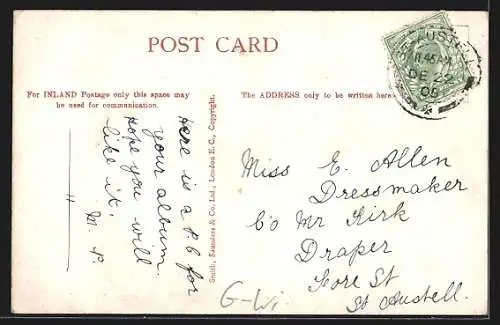 POST CARD
For INLAND Postage only this space may
be used for communication.
The ADDRESS only to be written here
ST AUSTELL
11.45AM
DE 22
05
Here is a P.C for
your album
hope you will
like it.
M. P.
Smith, Saunders & Co. Ltd., London E.C., Copyright.
Miss E. Allen
Dressmaker
C/o Mr Kirk
Draper
Fore St
St Austell.
G-Wi.